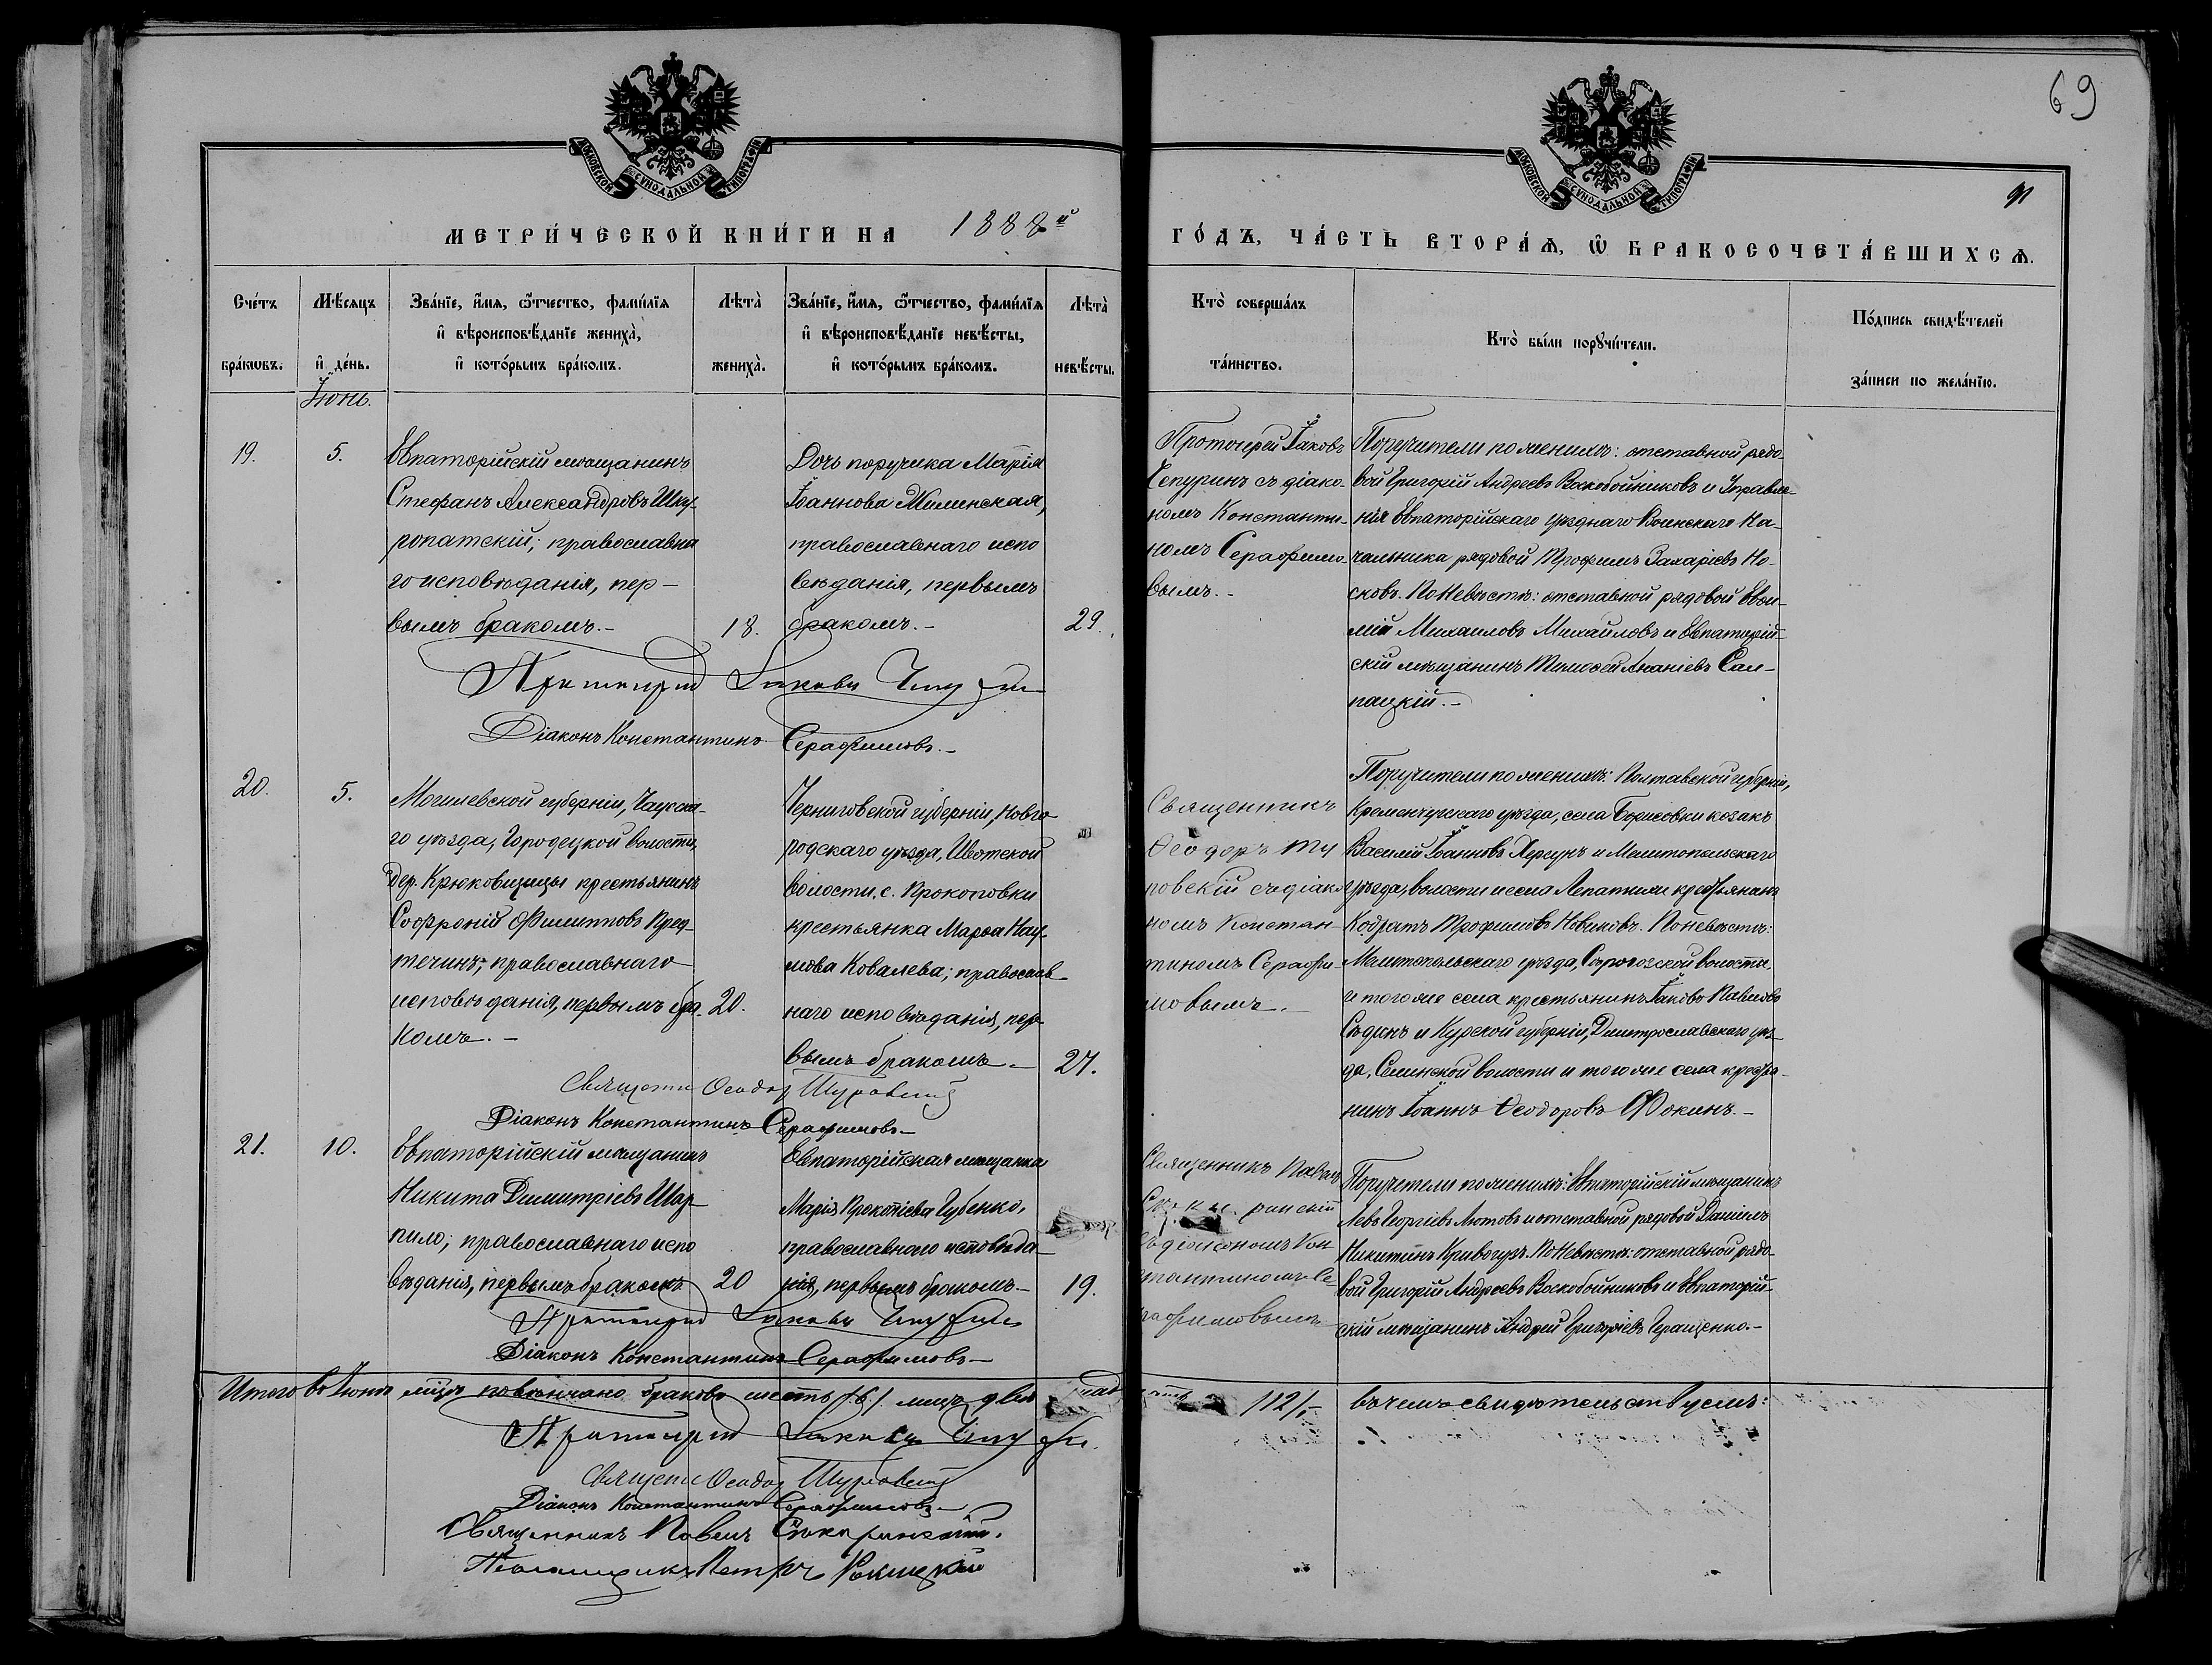 69
91
МОСКОВСКОЙ СУНОДАЛЬНОЙ ТИПОГРАФІИ
МОСКОВСКОЙ СУНОДАЛЬНОЙ ТИПОГРАФІИ
МЕТРИ́ЧЕСКОЙ КНИ́ГИ НА 1888й
ГО́ДЪ, ЧА́СТЬ ВТОРА́Ѧ, Ѽ БРАКОСОЧЕТА́ВШИХСѦ.
Сче́тъ бра́кѡвъ.
Мѣ́сяцъ и҆ де́нь.
Зва́нїе, и҆́мя, ѻ҆́тчество, фами́лїя
и҆ вѣроисповѣ́данїе жениха̀,
и҆ кото́рымъ бра́комъ.
Лѣта̀ жениха̀.
Зва́нїе, и҆́мя, ѻ҆́тчество, фами́лїя
и҆ вѣроисповѣ́данїе невѣ́сты,
и҆ кото́рымъ бра́комъ.
Лѣта̀ невѣ́сты.
Кто̀ соверша́лъ
та́инство.
Кто̀ бы́ли порꙋчи́тели.
По́дпись свидѣ́телей
за́писи по жела́нїю.
Іюнь.
19.
5.
Евпаторійскій мѣщанинъ
Стефанъ Александровъ Шку-
ропатскій; православна
го исповѣданія, пер-
вымъ бракомъ.-
18.
Дочь поручика Марія
Іоаннова Жилинская,
православнаго испо
вѣданія, первымъ
бракомъ.-
29.
Протоіерей Іаковъ
Чепуринъ съ діако-
номъ Константи-
номъ Серафимо
вымъ.-
Поручители по женихѣ: отставной рядо-
вой Григорій Андреевъ Воскобойниковъ и Управле-
нія Евпаторійскаго уѣзднаго Воинскаго На-
чальника рядовой Трофимъ Захаріевъ Но-
сковъ. По Невѣстѣ: отставной рядовой
Михаиловъ Михайловъ и Евпаторій-
скій мѣщанинъ Тимофей Ананіевъ Сал-
пацкій.-
Протоіерей Іаковъ Чепуринъ
Діаконъ Константинъ Серафимовъ.-
20.
5.
Могилевской губерніи, Чаусска-
го уѣзда, Городецкой волости,
дер. Крюковщизы крестьянинъ
Софроній Филипповъ Пред-
течинъ, православнаго
исповѣданія, первымъ бра-
комъ.-
20.
Черниговской губерніи, Новго
родскаго уѣзда, Ивотской
волости, с. Прокоповки
крестьянка Марѳа Нау-
мова Ковалева; православ-
наго исповѣданія, пер-
вымъ бракомъ.-
27.
Священникъ
Ѳеодоръ Ту
ровскій съ діако
номъ Констан-
тиномъ Серафи-
мовымъ.-
Поручители по женихѣ: Полтавской губерніи,
Кременчугскаго уѣзда, села Борисовки козакъ
Василій Іоанновъ Херунъ и Мелитопольскаго
уѣзда, волости и села Лепатихи крестьянинъ
Кодратъ Трофимовъ Новиковъ. По невѣстѣ:
Мелитопольскаго уѣзда, Сѣрогозской волости,
и того же села крестьянинъ Іаковъ Павловъ
Сѣдинъ и Курской губерніи, Димитрославскаго уѣз-
да, Селинской волости и того же села крестья-
нинъ Іоаннъ Ѳеодоровъ Фокинъ.-
Священ Ѳеодор Туровскій
Діаконъ Константинъ Серафимовъ.-
21.
10.
Евпаторійскій мѣщанинъ
Никита Димитріевъ Шар-
пило; православнаго испо
вѣданія, первымъ бракомъ
20
Евпаторійская мѣщанка
Марія Прокопіева Губенко,
православнаго исповѣда-
нія, первымъ бракомъ.-
19.
Священникъ Павелъ
съ діакономъ Кон
стантиномъ Се-
рафимовымъ
Поручители по женихѣ: Евпаторійскій мѣщанинъ
Левъ Георгіевъ Лютовъ и отставной рядовой Даніилъ
Никитинъ Кривогузъ. По Невѣстѣ: отставной рядо-
вой Григорій Андреевъ Воскобойниковъ и Евпаторій-
скій мѣщанинъ Андрей Григоріевъ Геращенко.-
Протоіерей Іаковъ Чепуринъ
Діаконъ Константинъ Серафимовъ.-
Итого въ Іюнѣ мцѣ повѣнчано браковъ шесть /6/ лицъ двѣ над цать /12/.- въ чемъ свидѣтельствуемъ:
Протоіерей Іаковъ Чепуринъ.
Священ Ѳеодор Туровскій
Діаконъ Константинъ Серафимовъ.-
Священникъ Павелъ
Псаломщикъ Петръ